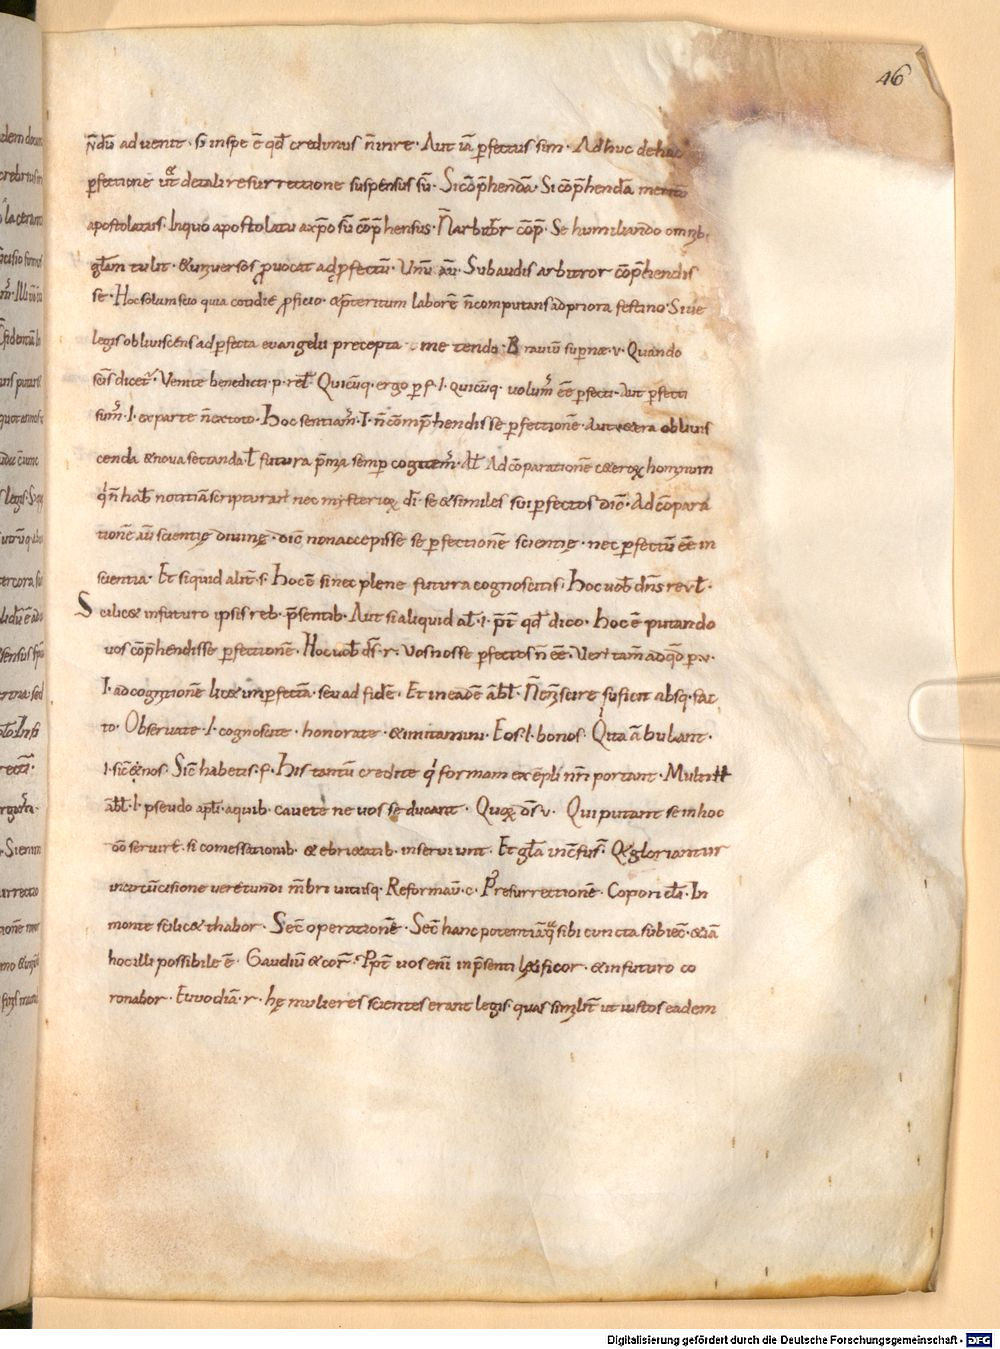 46
n̄dū aduenit· sꝫ inspe ē qd̄ credimus n̄ inre· Aut iā ꝑfectus sim· Adhuc de hac
ꝑfectione ut̄ detali resurrectione suspensus sū· Si cōp̄hendā· Si cōp̄hendā merito
apostolatus· Inquo apostolatu axp̄o sū cōp̄hensus· N̄ arbitr̄ cōp̄· Se humiliando omnib·
gl̄am tulit· & uniuersos ꝓuocat adꝓfectū· Unū aū· Subaudis arbitror cōp̄hendis
se· Hoc solum scio quia cotidie ꝓficio· & p̄teritum laborē n̄ computans ad priora festino· Siue
legis obliuiscens ad ꝑfecta euangelii precepta me tendo· Brauiū supernæ· v· Quando
scīs dicet̄· Venite benedicti· p· rel̄· Quicūq· ergo ꝑf· I· quicūq· uolum̄ ēē ꝑfecti· Aut ꝑfecti
sum̄· I· exparte n̄ extoto· Hoc sentiam̄· I· n̄ cōmp̄hendisse ꝑfectionē· Aut uetera obliuis
cenda & noua sectanda· ł futura p̄mia semꝑ cogitem̄· Al̄· Ad cōparationē ceteroꝝ hominum
q̄ n̄ hab̄ notitiā scripturarū nec mysterioꝝ dī· se & similes sui ꝑfectos dic̄· Ad cōpara
tionē aū scientię diuinę· dic̄ non accepisse se ꝑfectionē scientię· nec ꝑfectū ēē in
scientia· Et siquid alit̄· s· Hoc ē si nec plene futura cognoscitis· Hoc uob̄ dn̄s reul̄·
Scilicet infuturo ipsis reb· p̄sentib· Aut si aliquid al̄· I· p̄t̄ qd̄ dico· hoc ē putando
uos cōp̄hendisse ꝑfectionē· Hoc uob̄ dī· r· Vos nosse ꝑfectos n̄ ēē· Veri tam̄ ad qd̄ ꝑ·v·
I· ad cognitionē licet imꝑfectā· seu ad fidē· Et in eadē ābl̄· N̄ enī scire suficit absq· fac
to· Obseruate· I· cognoscite· honorate· & imitamini· Eos· I· bonos· Qui ita ābulant·
I· sic̄ & nos· Sic̄ habetis· f· His tantū credite q̄ formam exēpli nr̄i portant· Multi
ābl̄· I· pseudo apl̄i· aquib· cauete ne uos seducant· Quoꝝ d̄s v· Qui putant se in hoc
dō seruire· si comessationib· & ebrietatib· inseruiunt· Et gl̄a in cōfus̄· Q& gloriantur
in circūcisione ueretundi m̄bri utriusq· Reformau̅· c· P̄ resurrectionē· Copori cl̄a· In
monte scilicet thabor· Sec̄ operationē· Sec̄ hanc potentiā qua sibi cuncta subiec̄· & iā
hoc illi possibile ē· Gaudiū & cor̄· Ppt̄ uos enī in p̄senti lętificor· & infuturo co
ronabor· Euuodiā· r· hę mulieres scientes erant legis· quas similit̄ ut iustos eadem
Digitalisierung gefördert durch die Deutsche Forschungsgemeinschaft - DFG